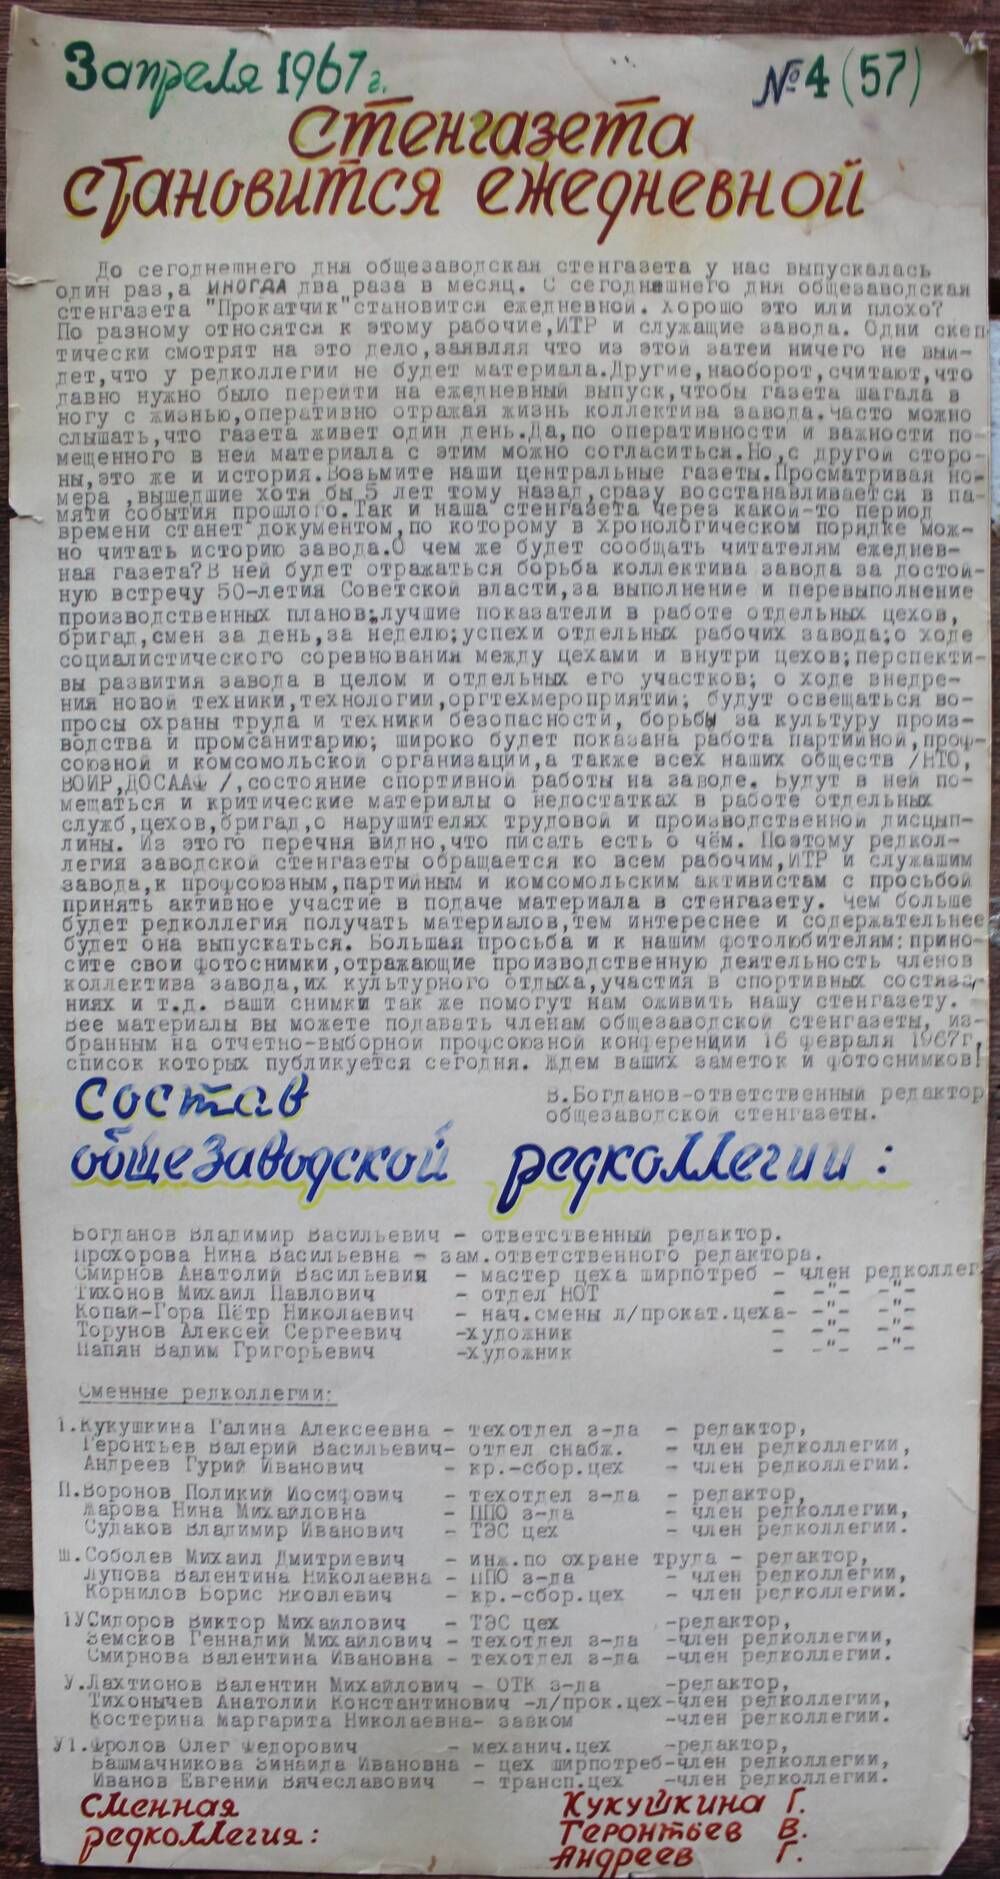 3 апреля 1967 г. №4 (57)
Стенгазета
становится ежедневной
До сегоднешнего дня общезаводская стенгазета у нас выпускалась
один раз,а ИНОГДА два раза в месяц. С сегоднешнего дня общезаводская
стенгазета "Прокатчик"становится ежедневной. Хорошо это или плохо?
По разному относятся к этому рабочие,ИТР и служащие завода. Одни скеп
тически смотрят на это дело,заявляя что из этой затеи ничего не вый-
дет,что у редколлегии не будет материала.Другие,наоборот,считают,что
давно нужно было перейти на ежедневный выпуск,чтобы газета шагала в
ногу с жизнью,оперативно отражая жизнь коллектива завода.Часто можно
слышать,что газета живет один день.Да,по оперативности и важности по-
мещенного в ней материала с этим можно согласиться.Но,с другой сторо-
ны,это же и история.Возьмите наши центральные газеты.Просматривая но-
мера ,вышедшие хотя бы 5 лет тому назад,сразу восстанавливается в па-
мяти события прошлого.Так и наша стенгазета через какой-то период
времени станет документом,по которому в хронологическом порядке мож-
но читать историю завода.О чем же будет сообщать читателям ежеднев-
ная газета?В ней будет отражаться борьба коллектива завода за достой-
ную встречу 50-летия Советской власти,за выполнение и перевыполнение
производственных планов;лучшие показатели в работе отдельных цехов,
бригад,смен за день,за неделю;успехи отдельных рабочих завода;о ходе
социалистического соревнования между цехами и внутри цехов;перспекти-
вы развития завода в целом и отдельных его участков; о ходе внедре-
ния новой техники,технологии,оргтехмероприятий; будут освещаться во-
просы охраны труда и техники безопасности, борьбы за культуру произ-
водства и промсанитарию; широко будет показана работа партийной,проф-
союзной и комсомольской организации,а также всех наших обществ /НТО,
ВОИР,ДОСААФ /,состояние спортивной работы на заводе. Будут в ней по-
мещаться и критические материалы о недостатках в работе отдельных
служб,цехов,бригад,о нарушителях трудовой и производственной дисцып-
лины. Из этого перечня видно,что писать есть о чём. Поэтому редкол-
легия заводской стенгазеты обращается ко всем рабочим,ИТР и служашим
завода,к профсоюзным,партийным и комсомольским активистам с просьбой
принять активное участие в подаче материала в стенгазету. Чем больше
будет редколлегия получать материалов,тем интереснее и содержательнее
будет она выпускаться. Большая просьба и к нашим фотолюбителям:прино-
сите свои фотоснимки,отражающие производственную деятельность членов
коллектива завода,их культурного отдыха,участия в спортивных состяза-
ниях и т.д. Ваши снимки так же помогут нам оживить нашу стенгазету.
Все материалы вы можете подавать членам общезаводской стенгазеты, из-
бранным на отчетно-выборной профсоюзной конференции 16 февраля 1967г,
список которых публикуется сегодня. Ждем ваших заметок и фотоснимков!
В.Богданов-ответственный редактор
общезаводской стенгазеты.
Состав
общезаводской редколлегии:
Богданов Владимир Васильевич - ответственный редактор.
Прохорова Нина Васильевна - зам.ответственного редактора.
Смирнов Анатолий Васильевия - мастер цеха ширпотреб - член редколлег
Тихонов Михаил Павлович - отдел НОТ - -"- -"-
Копай-Гора Пётр Николаевич - нач.смены л/прокат.цеха- -"- -"-
Торунов Алексей Сергеевич -художник - -"- -"-
Папян Вадим Григорьевич -художник - -"- -"-
Сменные редколлегии:
1.Кукушкина Галина Алексеевна - техотдел з-да - редактор,
Геронтьев Валерий Васильевич- отдел снабж. - член редколлегии,
Андреев Гурий Иванович - кр.-сбор.цех - член редколлегии.
П.Воронов Поликий Иосифович - техотдел з-да - редактор,
Жарова Нина Михайловна - ППО з-да - член редколлегии,
Судаков Владимир Иванович - ТЭС цех - член редколлегии.
Ш.Соболев Михаил Дмитриевич - инж.по охране труда - редактор,
Лупова Валентина Николаевна - ППО з-да - член редколлегии,
Корнилов Борис Яковлевич - кр.-сбор.цех - член редколлегии.
1УСидоров Виктор Михайлович - ТЭС цех -редактор,
Земсков Геннадий Михайлович - техотдел з-да -член редколлегии,
Смирнова Валентина Ивановна - техотдел з-да -член редколлегии.
У.Лахтионов Валентин Михайлович - ОТК з-да -редактор,
Тихонычев Анатолий Константинович -л/прок.цех-член редколлегии,
Костерина Маргарита Николаевна- завком -член редколлегии.
У1.Фролов Олег Федорович - механич.цех -редактор,
Башмачникова Зинаида Ивановна - цех ширпотреб-член редколлегии,
Иванов Евгений Вячеславович - трансп.цех -член редколлегии.
Сменная Кукушкина Г.
редколлегия: Геронтьев В.
Андреев Г.